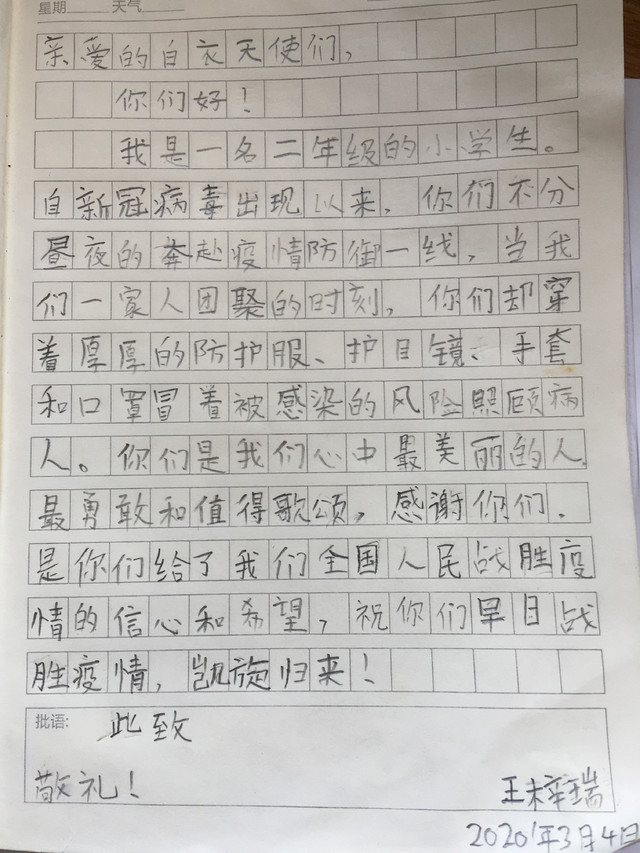 星期 天气
亲爱的白衣天使们，
你们好！
我是一名二年级的小学生。
自新冠病毒出现以来，你们不分
昼夜的奔赴疫情防御一线，当我
们一家人团聚的时刻，你们却穿
着厚厚的防护服、护目镜、手套
和口罩冒着被感染的风险照顾病
人。你们是我们心中最美丽的人，
最勇敢和值得歌颂，感谢你们，
是你们给了我们全国人民战胜疫
情的信心和希望，祝你们早日战
胜疫情，凯旋归来！
批语: 此致
敬礼！
王梓瑞
2020年3月4日